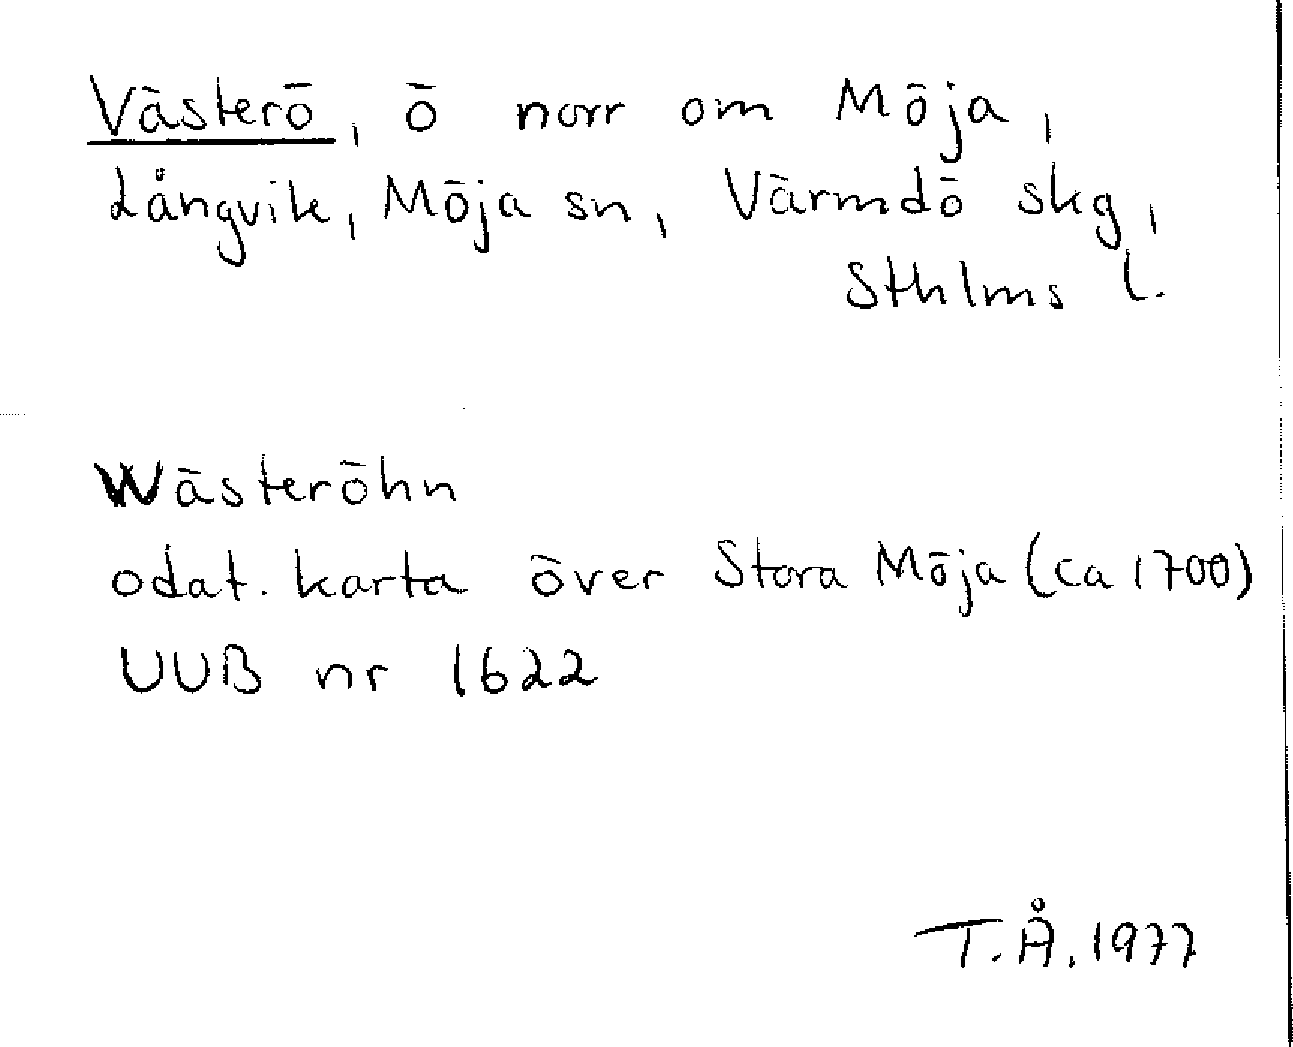 Västerö, ö norr om Möja,
Långvik, Möja sn, Värmdö skg,
Sthlms l.
Wästeröhn
odat. karta över Stora Möja (ca 1700)
UUB nr 1622
T.Å. 1977